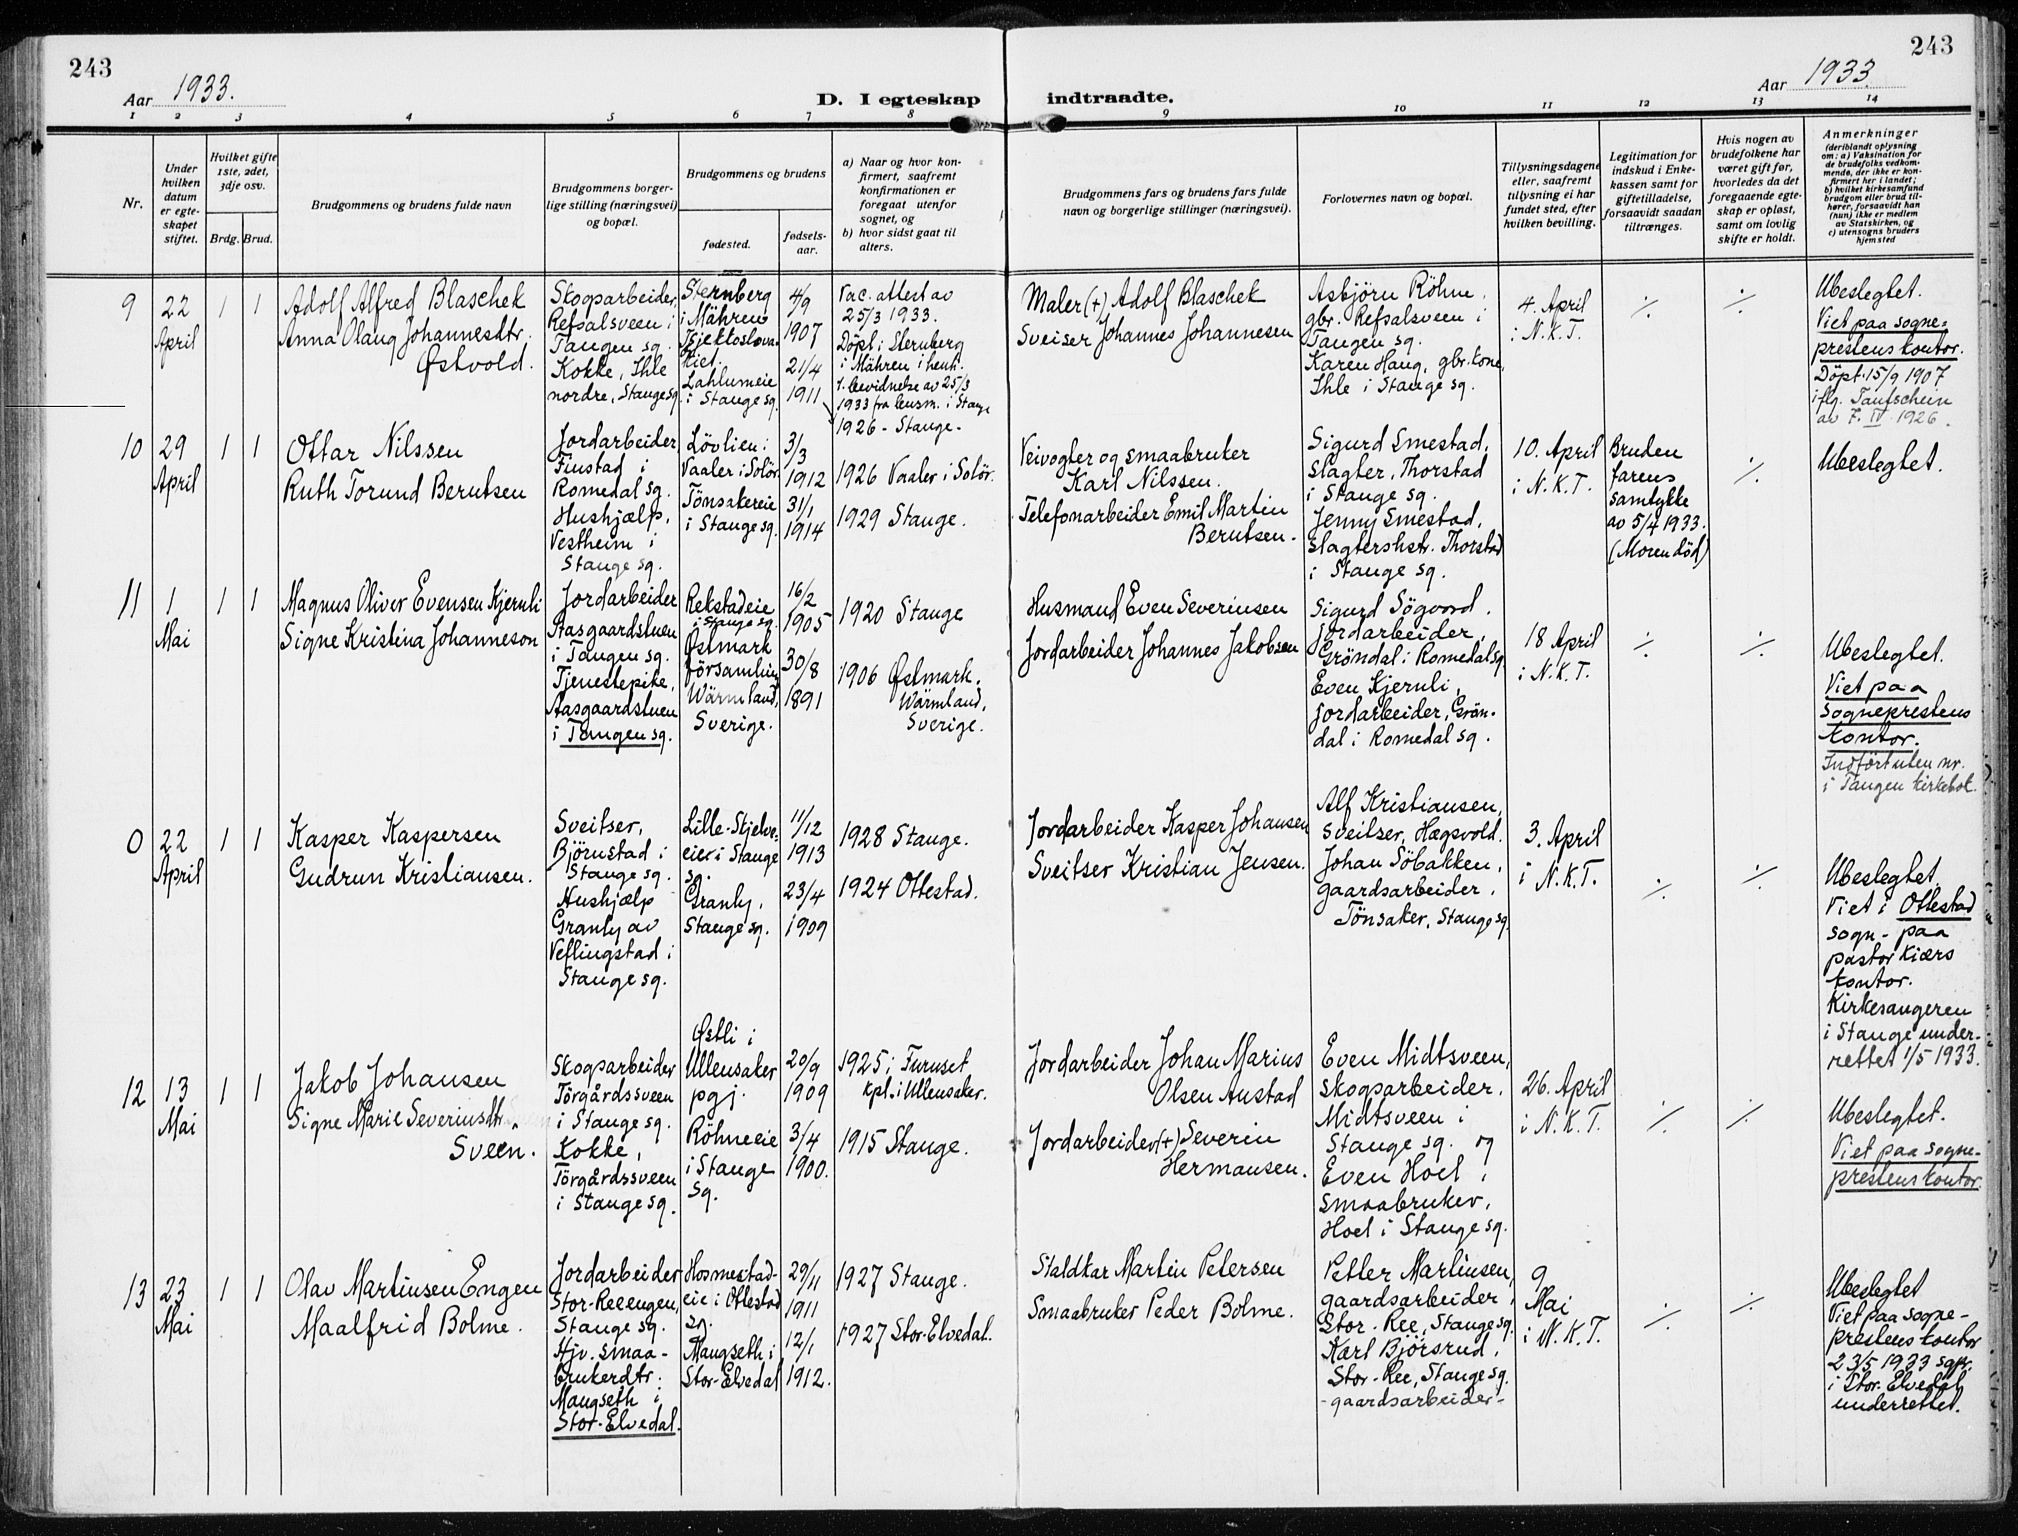 243
Aar 1933.
D. I egteskap
indtraadte.
243
Aar 1933.
1 2 3 4 5 6 7 8 9 10 11 12 13 14
Nr.
Under
hvilken
datum
er egte-
skapet
stiftet.
Hvilket gifte
1ste, 2det,
3dje osv.
Brdg. Brud.
Brudgommens og brudens fulde navn
Brudgommens borger-
lige stilling (næringsvei)
og bopæl.
Brudgommens og brudens
fødested.
fødsels-
aar.
a) Naar og hvor kon-
firmert, saafremt
konfirmationen er
foregaat utenfor
sognet, og
b) hvor sidst gaat til
alters.
Brudgommens fars og brudens fars fulde
navn og borgerlige stillinger (næringsvei).
Forlovernes navn og bopæl.
Tillysningsdagene
eller, saafremt
tillysning ei har
fundet sted, efter
hvilken bevilling.
Legitimation for
indskud i Enke-
kassen samt for
giftetilladelse,
forsaavidt saadan
tiltrænges.
Hvis nogen av
brudefolkene har
været gift før,
hvorledes da det
foregaaende egte-
skap er opløst,
samt om lovlig
skifte er holdt.
Anmerkninger
(deriblandt oplysning
om: a) Vaksination for
de brudefolks vedkom-
mende, der ikke er kon-
firmert her i landet;
b) hvilket kirkesamfund
brudgom eller brud til-
hører, forsaavidt han
(hun) ikke er medlem
av Statskirken, og
c) utensogns bruders
hjemsted
9
22
April
1 1
Adolf Alfred Blaschek
Anna Olaug Johannesdtr.
Østvold.
Skogsarbeider,
Refsalsveen i
Tangen sg.
Kokke, Ihle
nordre, Stange sg.
Sternberg
i Mähren
Tjekkoslova-
kiet.
Lahlumeie
i Stange sg.
4/9
1907
21/4
1911
Vac. attest av
25/3 1933.
Döpt i Sternberg
i Mähren i henh.
t. bevidnelse av 25/3
1933 fra lensm. i Stange
1926 - Stange -
Maler (+) Adolf Blaschek
Sveiser Johannes Johannesen
Asbjörn Röhne,
gbr. Refsalsveen i
Tangen sg.
Karen Haug, gbr. kone,
Ihle i Stange sg.
4. April
i N.K.T.
./.
./.
Ubeslegtet.
Viet paa sogne-
prestens kontor.
Döpt 15/9 1907
iflg. Taufschein
av 7. IV. 1926.
10
29
April
1 1
Ottar Nilssen
Ruth Torund Berntsen
Jordarbeider,
Finstad i
Romedal sg.
Hushjælp,
Vestheim i
Stange sg.
Lövlien i
Vaaler i Solör.
Tönsakereie
i Stange sg.
3/3
1912
31/1
1914
1926 Vaaler i Solör.
1929 Stange.
Veivogter og smaabruker
Karl Nilssen.
Telefonarbeider Emil Martin
Berntsen.
Sigurd Smestad,
slagter, Thorstad
i Stange sg.
Jenny Smestad,
slagtershstr. Thorstad
i Stange sg.
10. April
i N.K.T.
Bruden
farens
samtykke
av 5/4 1933.
(Moren död)
./.
Ubeslegtet.
11
1
Mai
1 1
Magnus Oliver Evensen Kjernli
Signe Kristina Johanneson
Jordarbeider
Aasgaardstuen
i Tangen sg.
Tjenestepike,
Aasgaardstuen
i Tangen sg.
Rekstadeie
i Stange sg.
Östmark
församling
Wärmland,
Sverige.
16/2
1905
30/8
1891
1920 Stange
1906 Østmark,
Wärmland,
Sverige.
Husmand Even Severinsen
Jordarbeider Johannes Jakobsen
Sigurd Sögvord,
jordarbeider,
Gröndal i Romedal sg.
Even Kjernli,
jordarbeider, Grön-
dal i Romedal sg.
18 April
i N.K.T.
./.
./.
Ubeslegtet.
Viet paa
sogneprestens
kontor.
Indfört uten nr.
i Tangen kirkebok.
0
22
April
1 1
Kasper Kaspersen
Gudrun Kristiansen.
Sveitser,
Björnstad i
Stange sg.
Hushjælp
Granly av
Veflingstad i
Stange sg.
Lille-Skjelve-
eie i Stange
sg.
Granly,
Stange sg.
11/12
1913
23/4
1909
1928 Stange.
1924 Ottestad.
Jordarbeider Kasper Johansen
Sveitser Kristian Jensen.
Alf Kristiansen,
sveitser, Hægsvold.
Johan Söbakken,
gaardsarbeider,
Tönsaker, Stange sg.
3. April
i N.K.T.
./.
./.
Ubeslegtet
Viet i Ottestad
sogn - paa
pastor Kiærs
kontor.
Kirkesangeren
i Stange under-
rettet 1/5 1933.
12
13
Mai
1 1
Jakob Johansen
Signe Marie Severinsdtr.
Sveen.
Skogsarbeider
Törgårdssveen
i Stange sg.
Kokke,
Törgårdssveen
i Stange sg.
Østli i
Ullensaker
pgj.
Röhneeie
i Stange
sg.
20/9
1909
3/4
1900.
1925 i Furuset
kpl. i Ullensaker.
1915 Stange.
Jordarbeider Johan Marius
Olsen Austad
Jordarbeider (+) Severin
Hermansen.
Even Midtsveen,
skogsarbeider,
Midtsveen i
Stange sg. og
Even Hoel,
smaabruker,
Hoel i Stange sg.
26. April
i N.K.T.
./.
./.
Ubeslegtet.
Viet paa sogne-
prestens kontor.
13
23
Mai
1 1
Olav Martinsen Engen
Maalfrid Bolme.
Jordarbeider
Stor-Reeengen,
Stange sg.
Hjv. smaa-
brukerdtr.
Maugseth i
Stor-Elvedal.
Hosmestad-
eie i Ottestad
sg.
Maugseth i
Stor-Elvedal
29/11
1911
12/1
1912.
1927 Stange.
1927 Stor-Elvedal.
Staldkar Martin Petersen
Smaabruker Peder Bolme.
Petter Martinsen,
gaardsarbeider,
Stor-Ree, Stange sg.
Karl Björsrud,
Stor-Ree, Stange sg.
- gaardsarbeider -
9
Mai
i N.K.T.
./.
./.
Ubeslegtet
Viet paa sogne-
prestens kontor
23/5 1933 sgpr.
i Stor-Elvedal
underrettet.